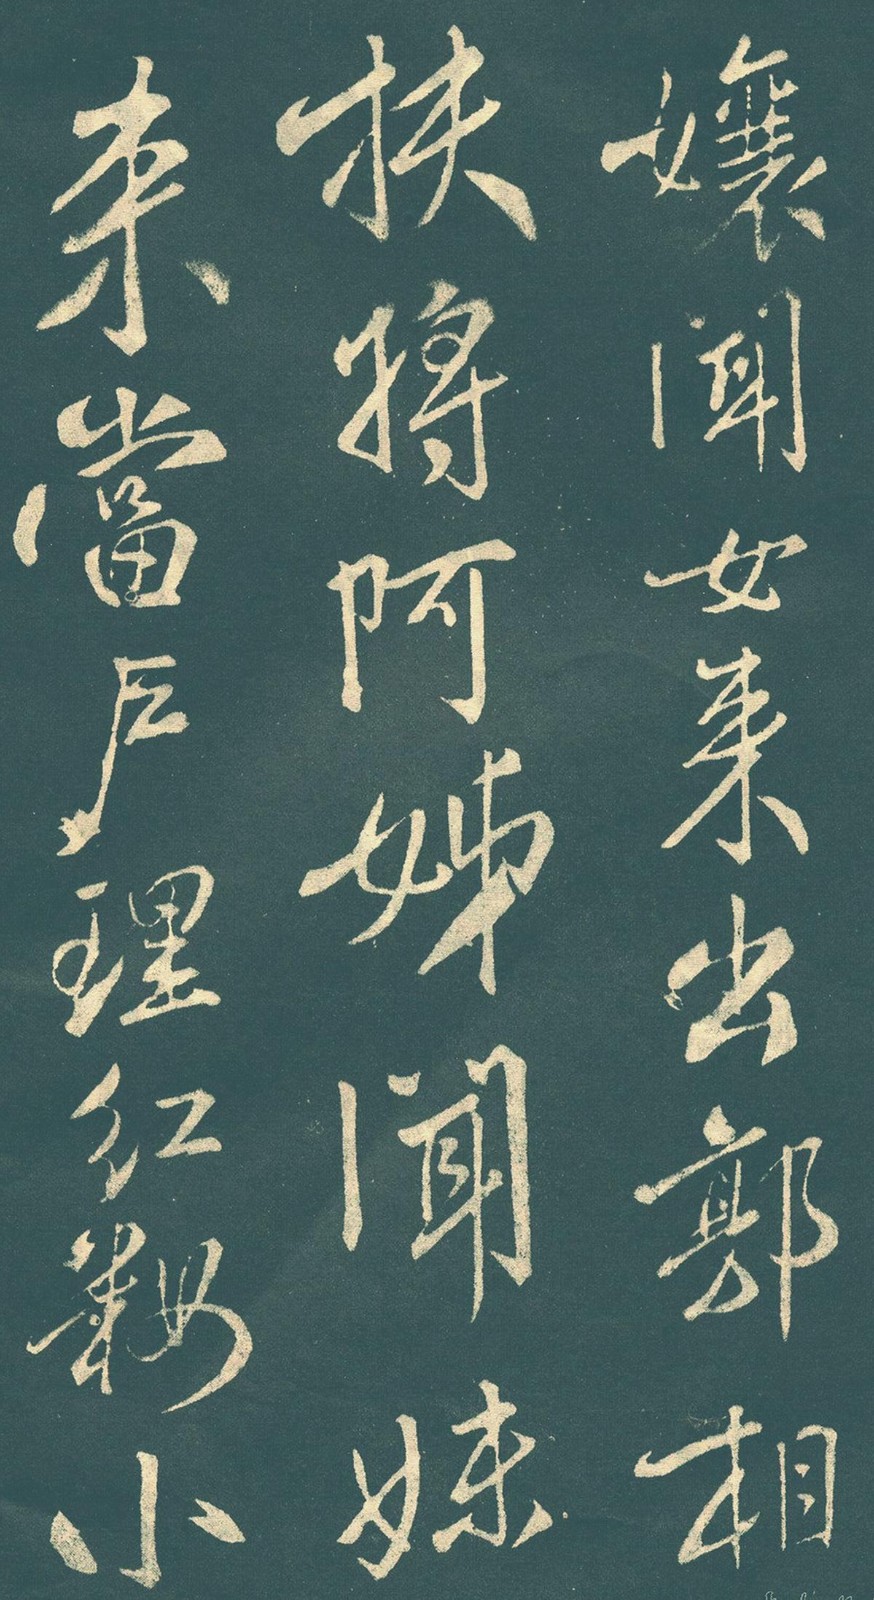 孃聞女来出郭相
扶將阿姊聞妹
来當戶理紅粧小